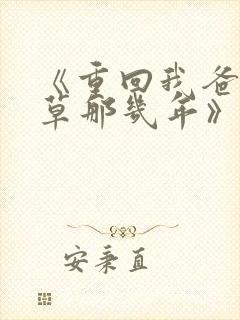 《重回我爸
草那几年》
安秉直